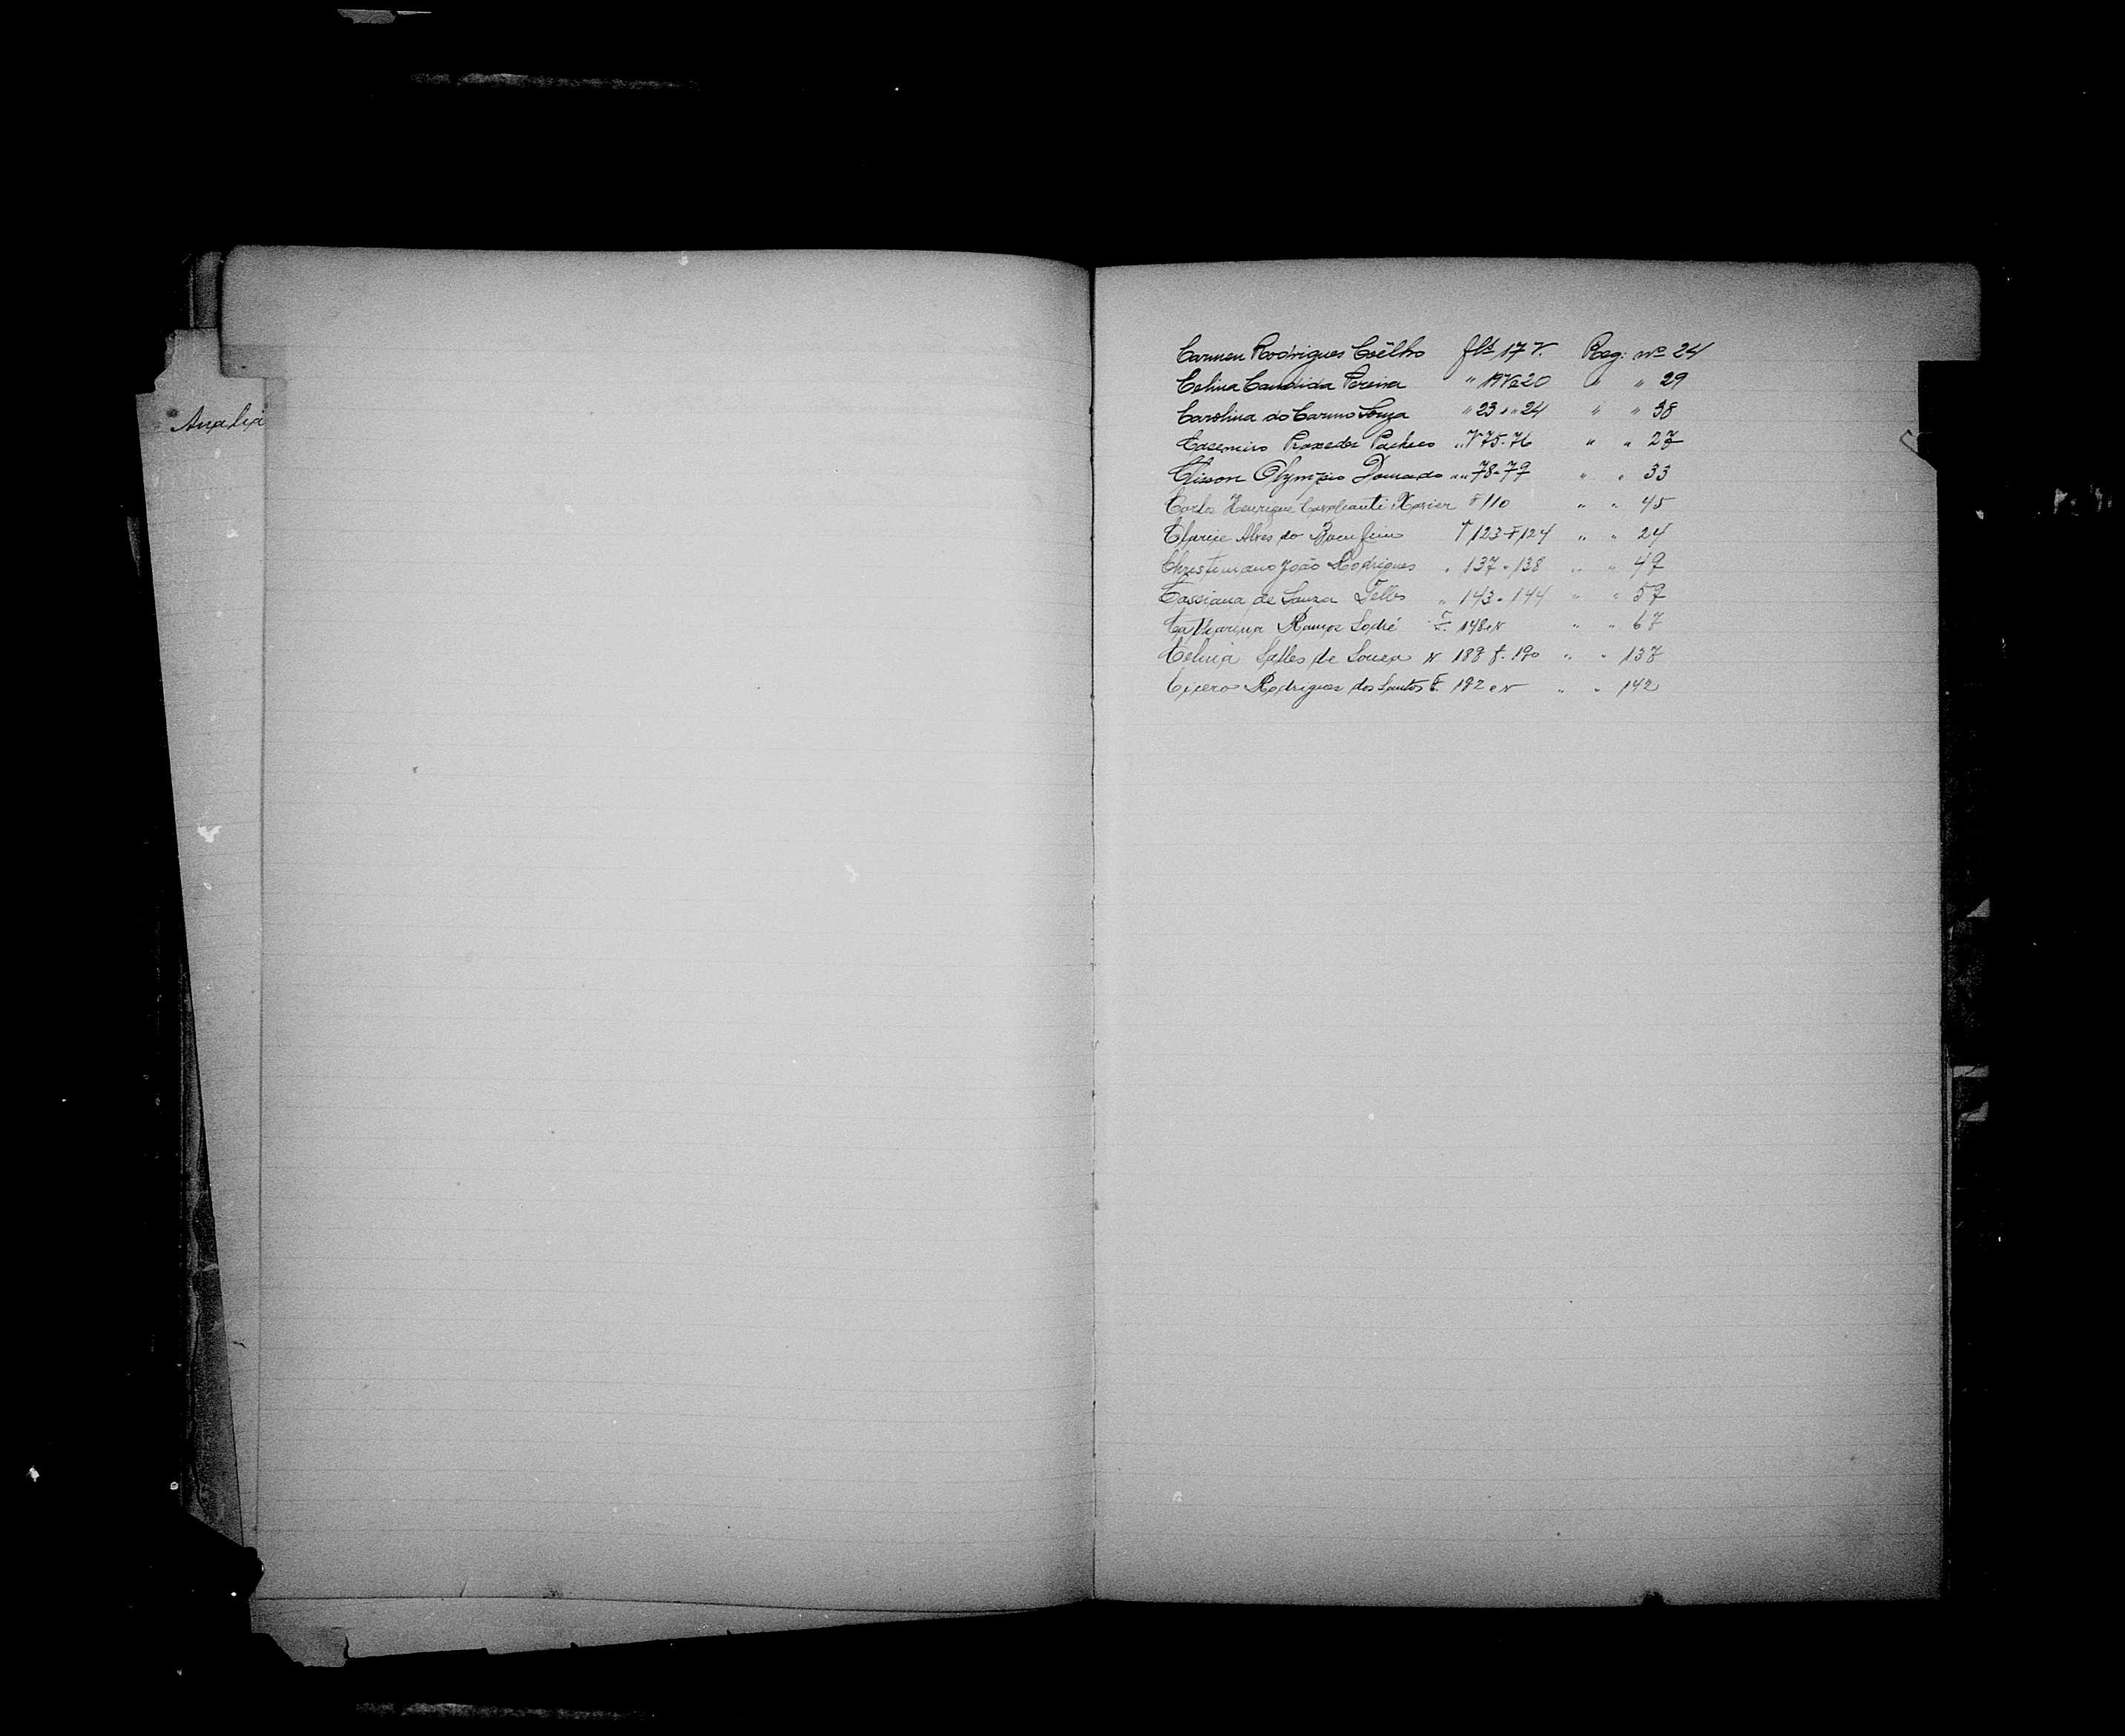 Analia
Carmen Rodrigues Coêlho fls 17 V. Reg: nº 24
Celina Candida Pereira " 19 V a 20 " " 29
Carolina do Carmo Souza " 23 " " 24 " " 38
Casemiro Praxedes Pacheco " V 75-76 " " 27
Olympio Dourado " " 78-79 " " 33
Carlos Henrique Cavalcanti Xavier F 110 " " 45
Clarice Alves do Bomfim 123 F 124 " " 24
Christiniano João Rodrigues " 137 " 138 " " 49
Cassiana de Souza Telles " 143 " 144 " " 59
Catharina Ramos Sodré F. 148 e V " " 67
Celina Salles de Souza V 189 f. 190 " " 137
Cicero Rodrigues dos Santos F. 192 e V " " 142